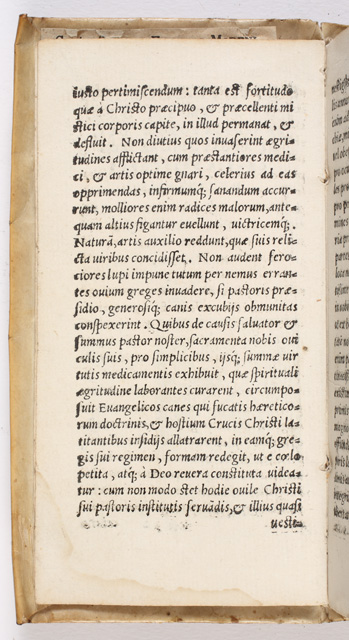 iusto pertimiscendum: tanta est fortitudo
quæ à Christo præcipuo, & præcellenti mi
stici corporis capite, in illud permanat, &
defluit. Non diutius quos inuaserint ægri-
tudines afflictant, cum præstantiores medi-
ci, & artis optime gnari, celerius ad eas
opprimendas, infirmumq́; sanandum accur-
runt, molliores enim radices malorum, ante-
quam altius figantur euellunt, uictricemq́;.
Naturã, artis auxilio reddunt, quæ suis reli-
cta uiribus concidisset. Non audent fero-
ciores lupi impune tutum per nemus erran-
tes ouium greges inuadere, si pastoris præ-
sidio, generosiq́; canis excubijs obmunitas
conspexerint. Quibus de causis saluator &
summus pastor noster, sacramenta nobis oui
culis suis, pro simplicibus, ijsq́; summæ uir
tutis medicamentis exhibuit, quæ spirituali
ægritudine laborantes curarent, circumpo-
suit Euangelicos canes qui fucatis hæretico-
rum doctrinis, & hostium Crucis Christi la-
titantibus insidijs allatrarent, in eamq́; gre-
gis sui regimen, formam redegit, ut e cœlo
petita, atq́; à Deo reuera constituta uidea-
tur: cum non modo stet hodie ouile Christi
sui pastoris institutis seruãdis, & illius quasi
uesti-